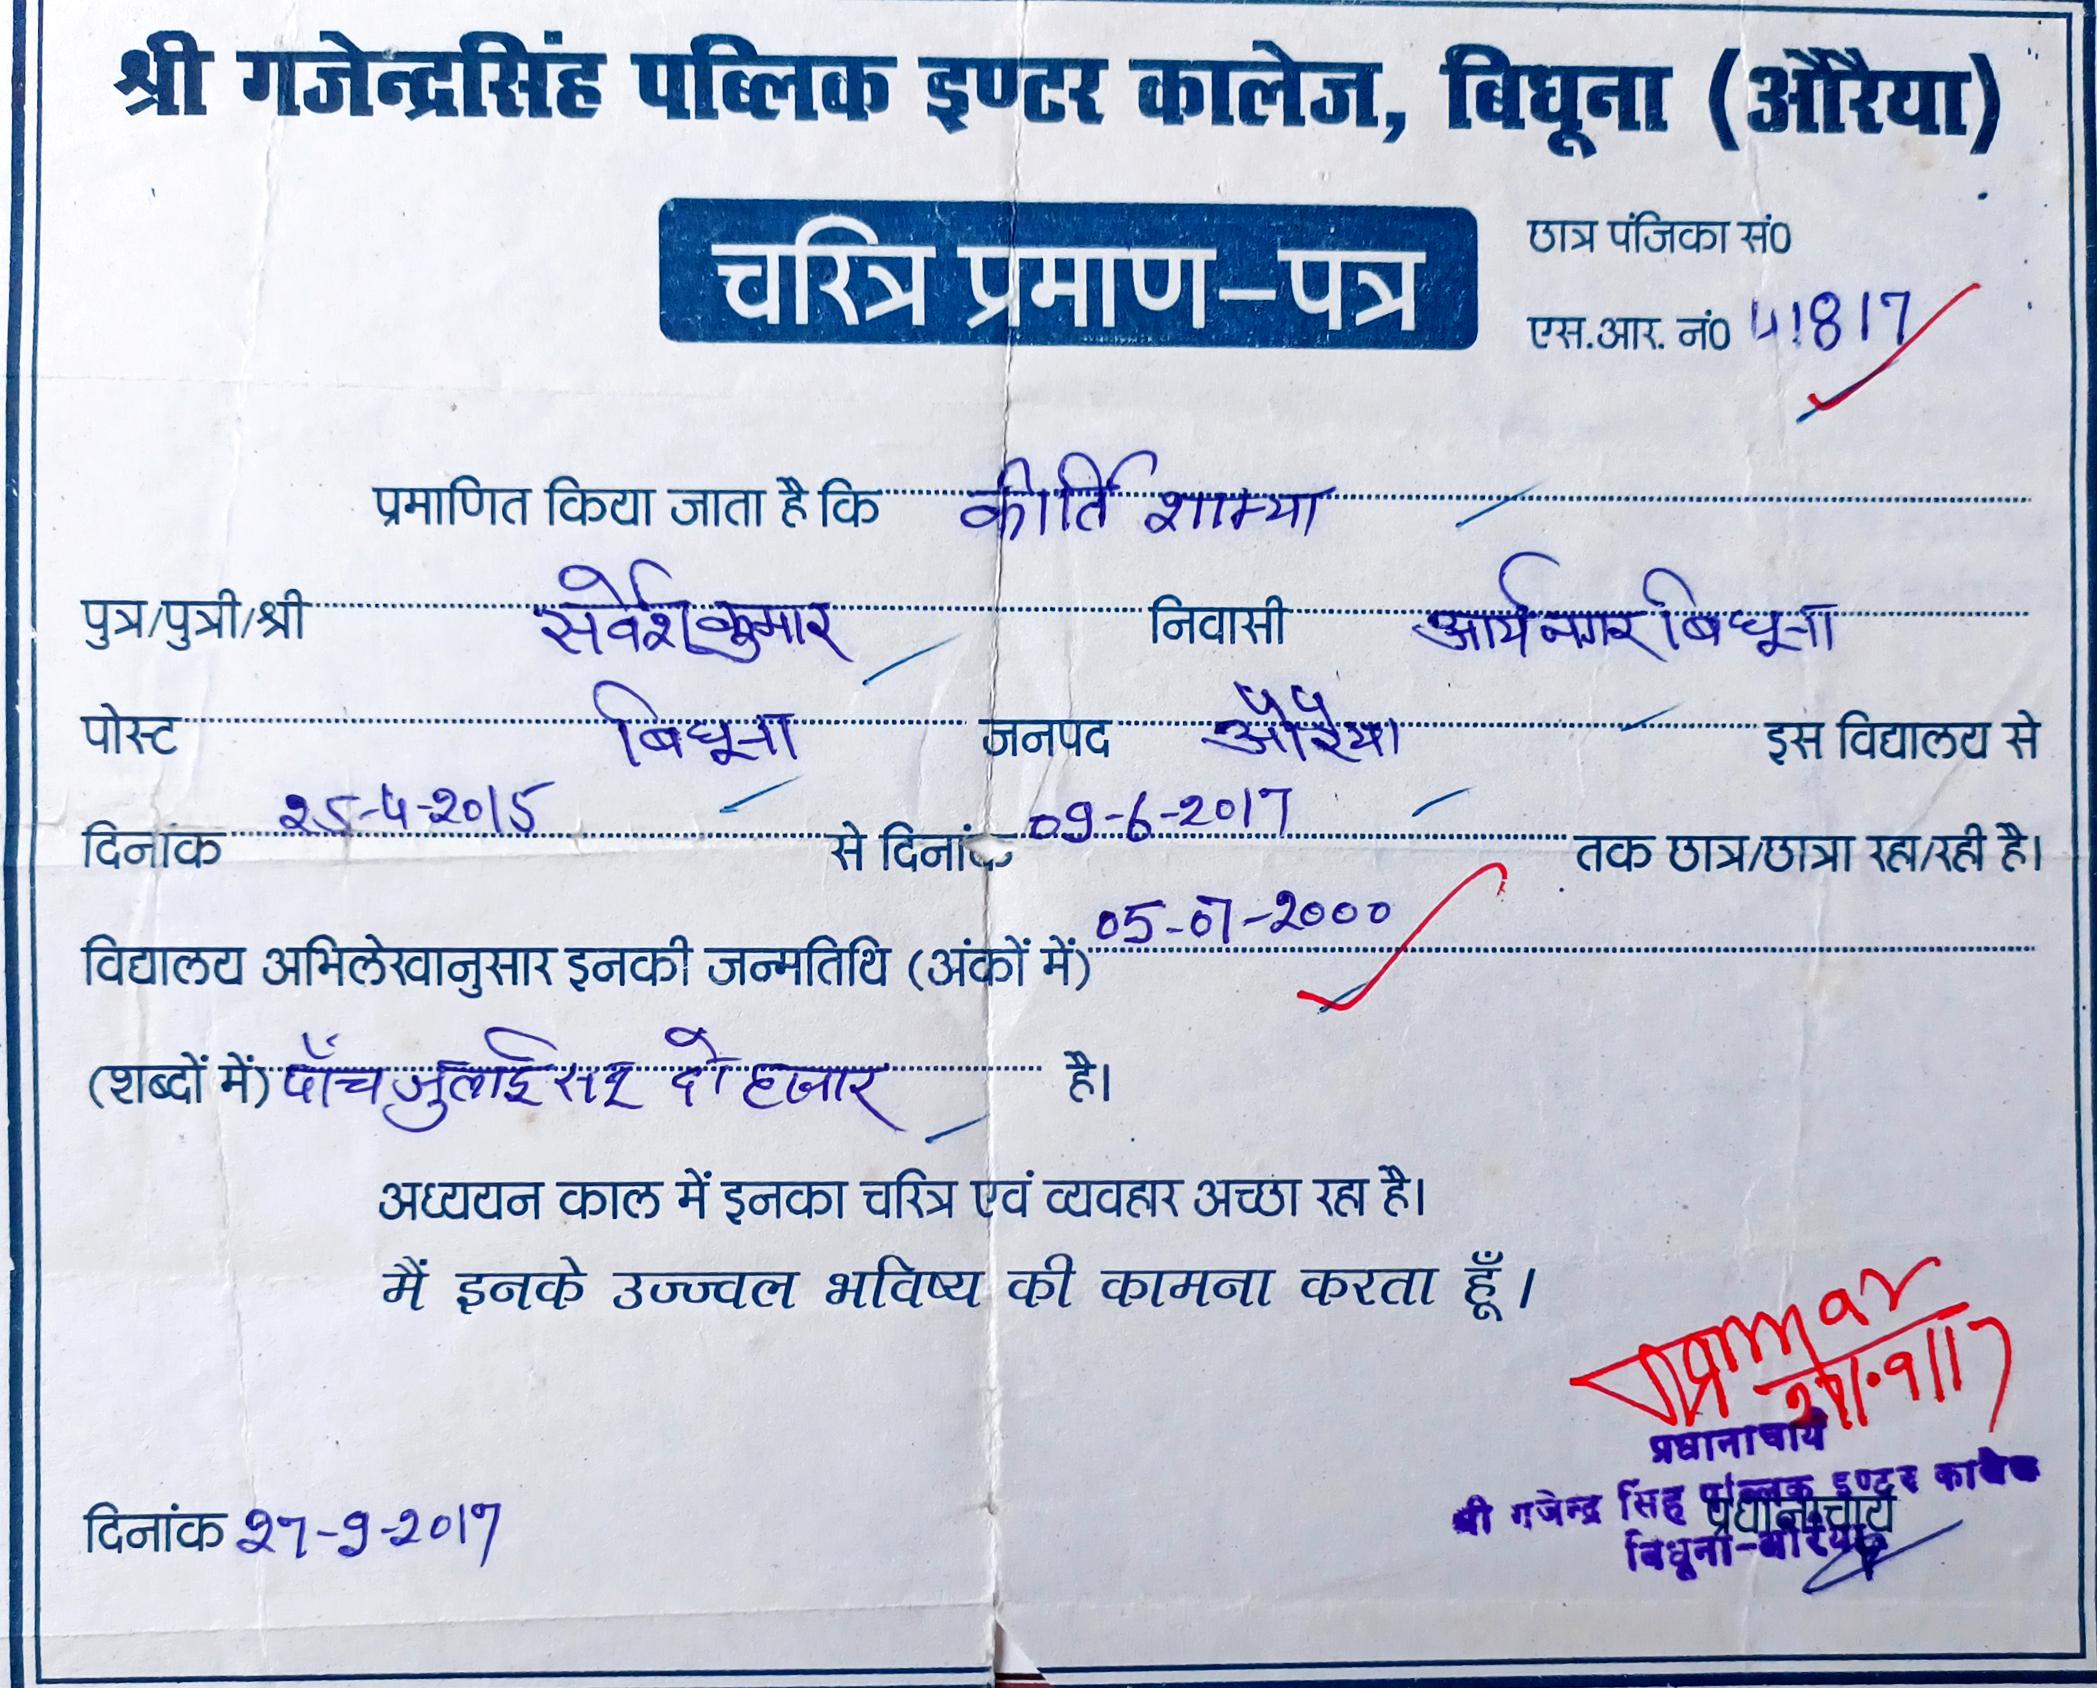 श्री गजेन्द्रसिंह पब्लिक इण्टर कालेज, बिधूना (औरैया)
चरित्र प्रमाण-पत्र
छात्र पंजिका सं०
एस.आर. नं० 41817
प्रमाणित किया जाता है कि कीर्ति शाम्या
पुत्र/पुत्री/श्री सर्वेश कुमार निवासी आर्य नगर बिधूना
पोस्ट बिधूना जनपद औरैया इस विद्यालय से
दिनांक 25-4-2015 से दिनांक 09-6-2017 तक छात्र/छात्रा रहा/रही है।
विद्यालय अभिलेखानुसार इनकी जन्मतिथि (अंकों में) 05-07-2000
(शब्दों में) पाँच जुलाई सन् दो हजार है।
अध्ययन काल में इनका चरित्र एवं व्यवहार अच्छा रहा है।
मैं इनके उज्ज्वल भविष्य की कामना करता हूँ।
प्रधानाचार्य
श्री गजेन्द्र सिंह पब्लिक इण्टर कालेज
प्रधानाचार्य
बिधूना-औरैया
दिनांक 27-9-2017